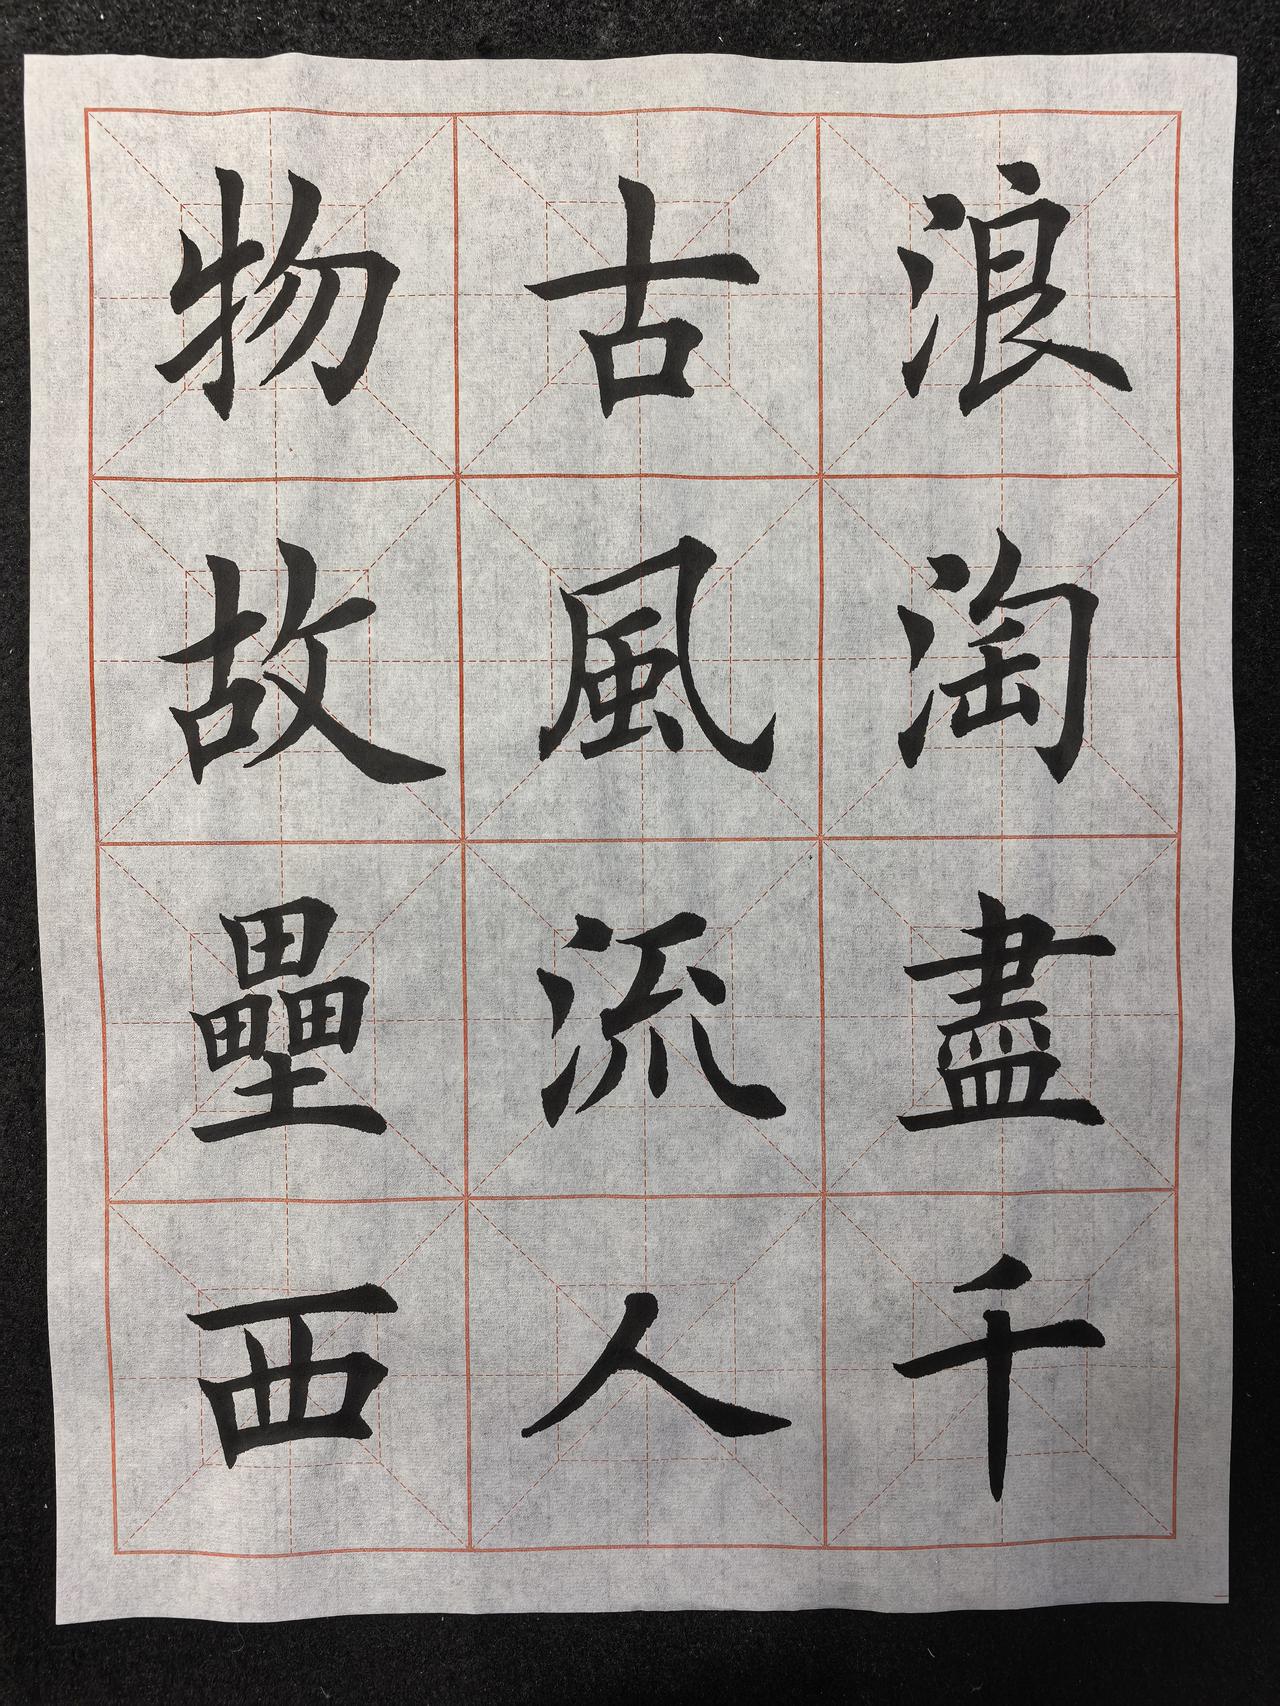 浪淘盡千
古風流人
物故壘西